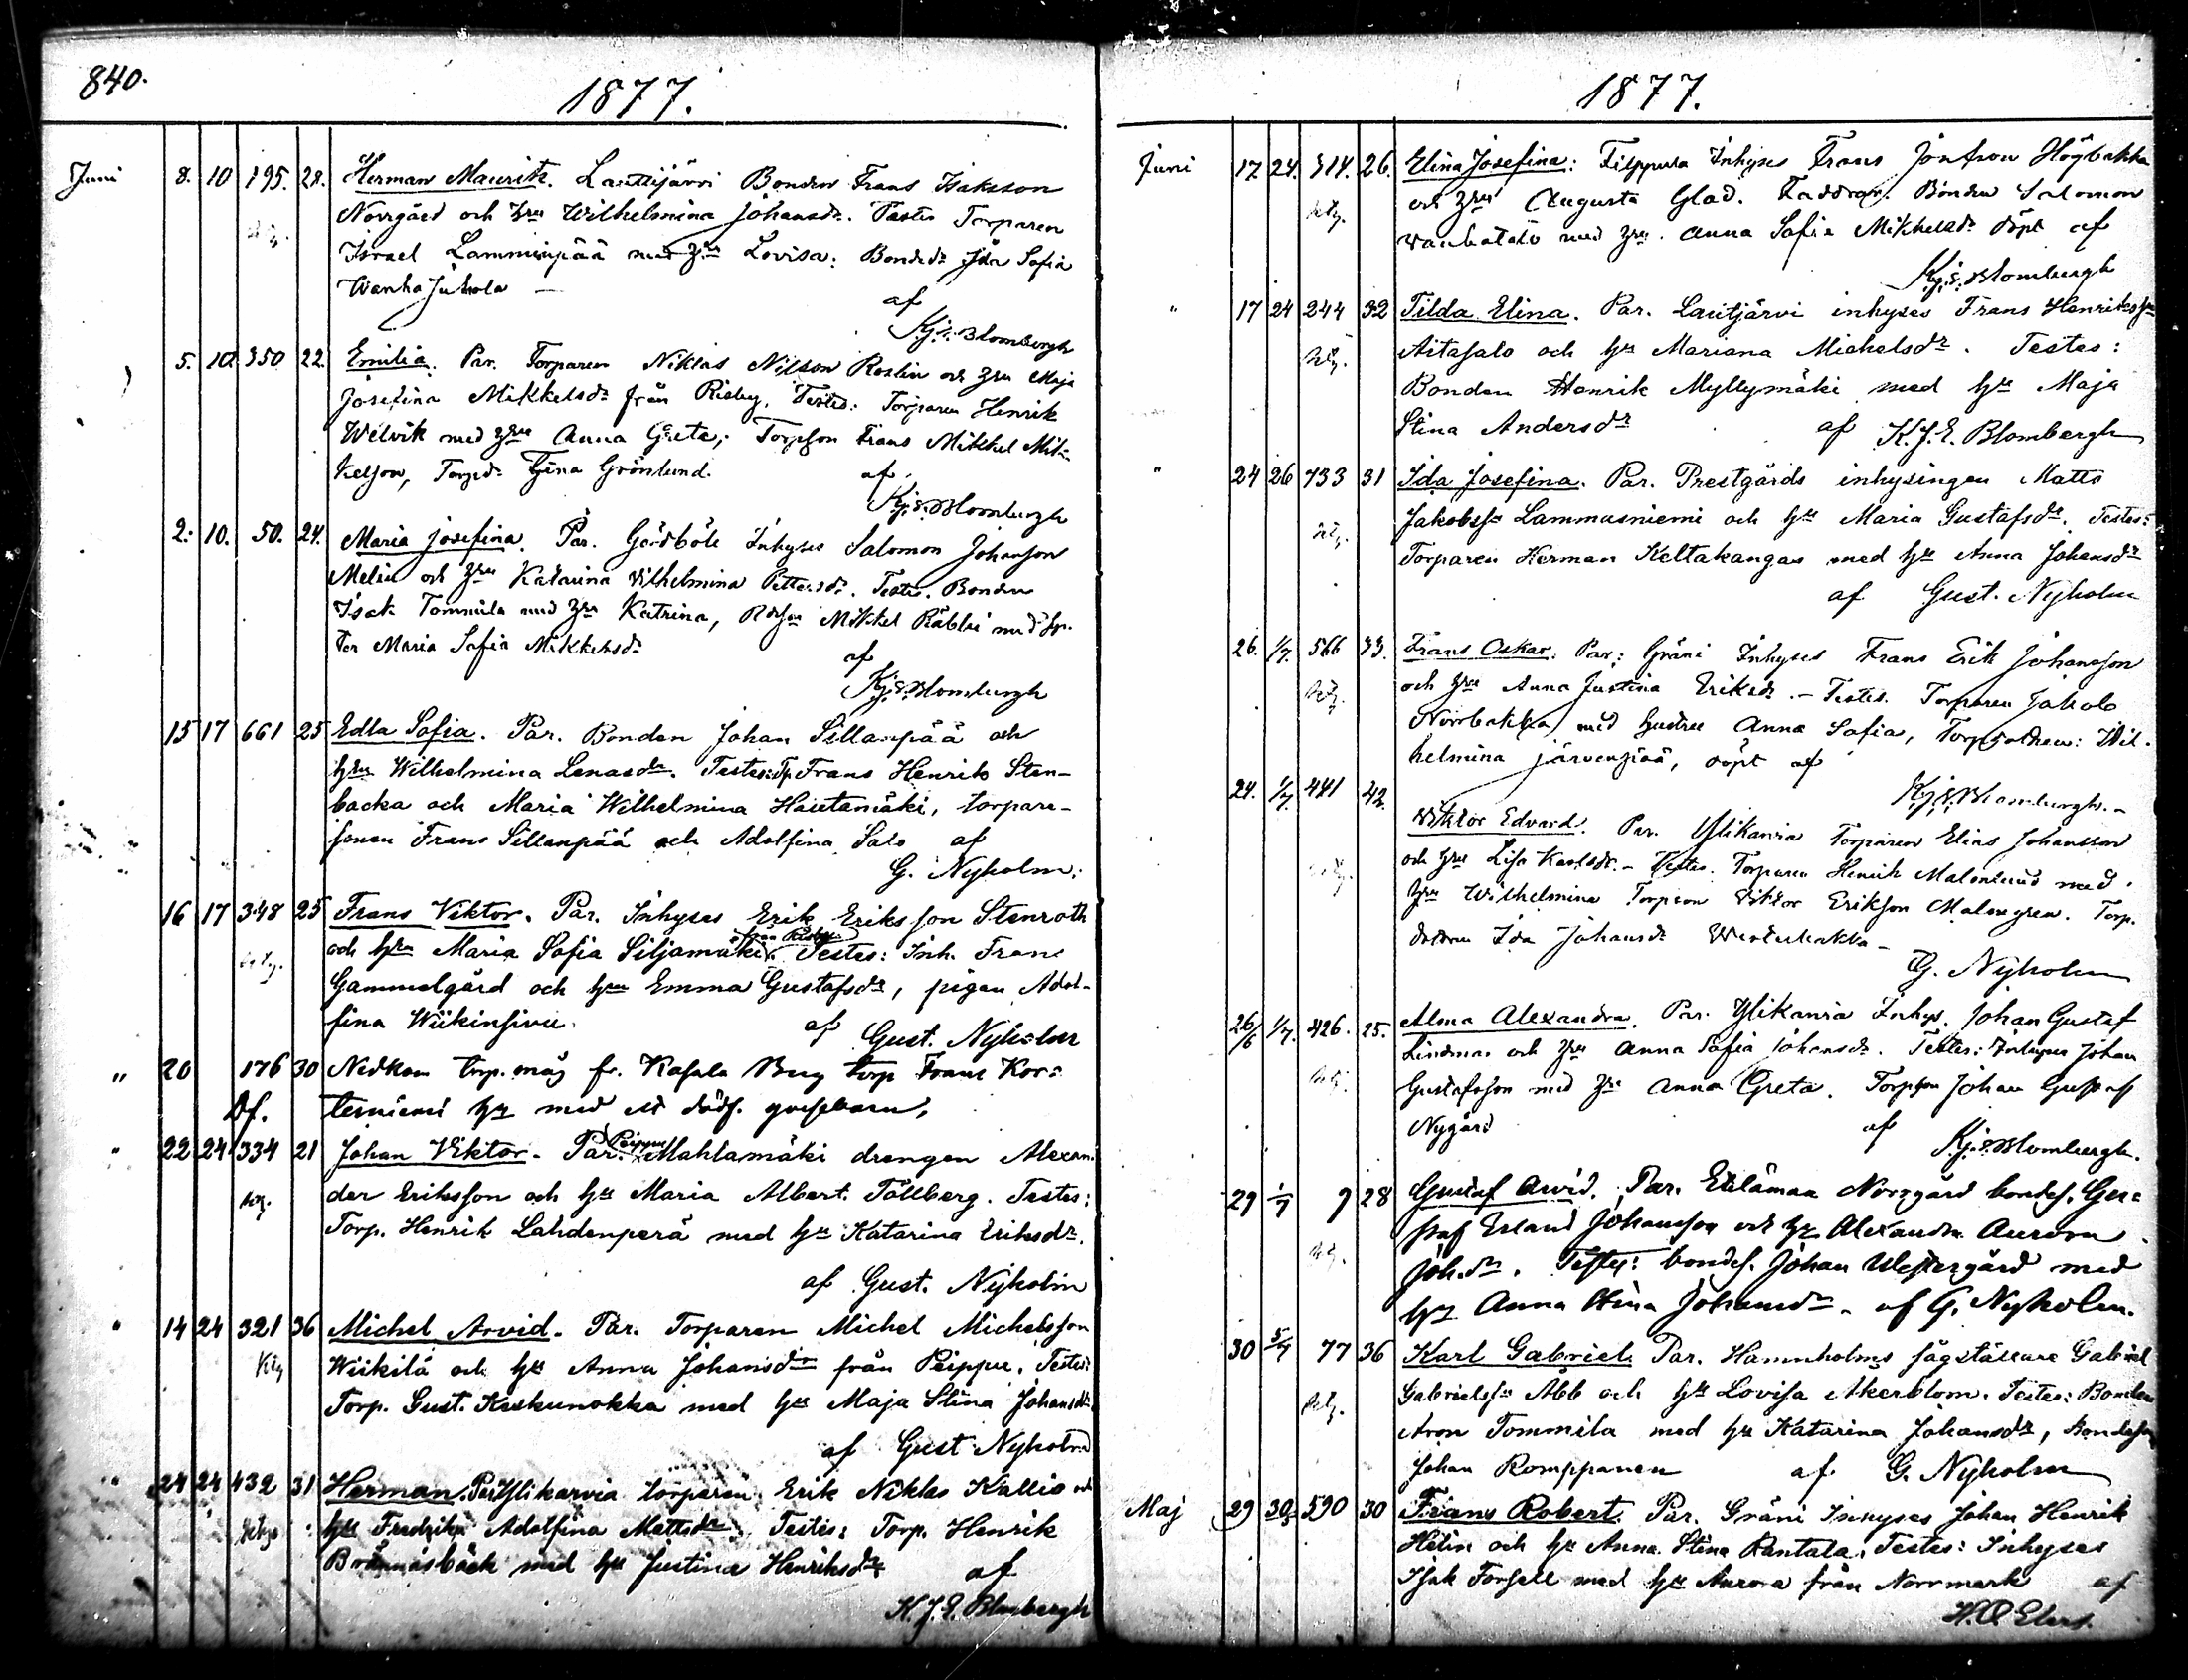 840.
1877.
Juni 8. 10 195. 28. Herman Mauritz. Lauttijärvi Bonden Frans Isaksson
Norrgård och hru Wilhelmina Johansdr. Testes Torparen
Israel Lamminpää med hru Lovisa: Bondedr Ida Sofia
Wanha Juhola —
af
K.J.E. Blombergh
5. 10. 350 22. Emilia. Par. Torparen Niklas Nilsson Roslin och hru Maja
Josefina Mikkelsdr från Risby. Testes: Torparen Henrik
Wilvik med hru Anna Greta; Torpson Frans Mikkel Mik-
kelson, Torpdr Grönlund.
af
K.J.E. Blombergh
2. 10. 50. 24. Maria Josefina. Par. Gårdböle Inhyses Salomon Johanson
Melin och hru Katarina Vilhelmina Pettersdr. Testes. Bonden
Isak Tommila med hru Katrina, Mikkel med
Maria Sofia Mikkelsdr
af
K.J.E. Blombergh
15 17 661 25 Edla Sofia. Par. Bonden Johan Sillanpää och
hru Wilhelmina Lenasdr. Testes: Tp. Frans Henrik Sten-
backa och Maria Wilhelmina Hautamäki, torpare-
sonen Frans Sillanpää och Adolfina Salo af
G. Nyholm.
16 17 348 25 Frans Viktor. Par. Inhyses Erik Eriksson Stenroth
från Risby
och hru Maria Sofia Siljamäki. Testes: Inh. Frans
betg.
Gammelgård och hru Emma Gustafsdr, pigan Adol-
fina Wiikinsivu. af Gust. Nyholm
" 20 176 30 Nedkom torp. måg fr. Kasala Torp Frans Kor-
Df. teniemi hu med ett dödf. gossebarn.
" 22 24 334 21 Johan Viktor. Par. Peippu Mahlamäki drengen Alexan-
betg. der Eriksson och hu Maria Albert. Tällberg. Testes:
Torp. Henrik Lahdenperä med hu Katarina Eriksdr.
af Gust. Nyholm
" 14 24 321 36 Michel Arvid. Par. Torparen Michel Michelsson
Wiikilä och hu Anna Johansdr från Peippu. Testes:
Torp. Gust. Keskunokka med hu Maja Stina Johansdr
af Gust Nyholm
" 24 24 432 31 Herman. Par. Ylikarvia torparen Erik Niklas Kallio och
hu Fredrika Adolfina Mattsdr. Testes: Torp. Henrik
Brännäsbäck med hu Justina Henriksdr af
K.J.E. Blombergh
1877.
Juni 17. 24. 314. 26. Elina Josefina: Filppula Inhyses Frans Jonsson Högbakka
betg. och hru Augusta Glad. Faddrar. Bonden Salomon
Wanhatalo med hru. Anna Sofia Mikkelsdr döpt af
K.J.E. Blombergh
" 17 24 244 32 Tilda Elina. Par. Lautjärvi inhyses Frans Henriksson
betg. Aitasalo och hu Mariana Michelsdr. Testes:
Bonden Henrik Myllymäki med hu Maja
Stina Andersdr af K.J.E. Blombergh
" 24 26 733 31 Ida Josefina. Par. Prestgårds inhysingen Matts
betg. Jakobsson Lammasniemi och hu Maria Gustafsdr. Testes:
Torparen Herman Keltakangas med hu Anna Johansdr
af Gust. Nyholm
26. 1/7. 566 33. Frans Oskar. Par: Gräni Inhyses Frans Erik Johansson
betg. och hru Anna Justina Eriksdr. – Testes. Torparen Jakob
Norrbakka med hustru Anna Sofia, Torpdottren: Wil-
helmina Järvenpää, döpt af
K.J.E. Blombergh. –
24. 1/7. 441 42. Viktor Edvard. Par. Ylikarvia Torparen Elias Johansson
och hru Lisa Karlsdr. – Testes. Torparen Henrik Malmlund med
hru Wilhelmina Torpson Viktor Erikson Malmgren. Torp.
dottren Ida Johansdr Westerbakka –
G. Nyholm
26/6 1/7. 426. 25. Alma Alexandra. Par. Ylikarvia Inhys. Johan Gustaf
Lindman och hru Anna Sofia Johansdr. Testes: Inhyses Johan
betg. Gustafsson med hru Anna Greta. Torpson Johan Gustaf
Nygård af K.J.E. Blombergh.
29 1/7 9 28 Gustaf Arvid. Par. Etelämaa Norrgård bondes. Gu-
staf Erland Johansson och hu Alexandra Aurora
betg. Joh.dr. Testes: bondes. Johan Westergård med
hu Anna Stina Johansdr. af G. Nyholm.
30 5/7 77 36 Karl Gabriel. Par. Hamnholms sågställare Gabriel
betg. Gabrielsson Abb och hu Lovisa Åkerblom. Testes: Bonden
Aron Tommila med hu Katarina Johansdr, bondeson
Johan Romppanen af G. Nyholm
Maj 29 30/5 590 30 Frans Robert. Par. Gräni Inhyses Johan Henrik
Helin och hu Anna Stina Rantala. Testes: Inhyses
Isak Forsell med hu Aurora från Norrmark af